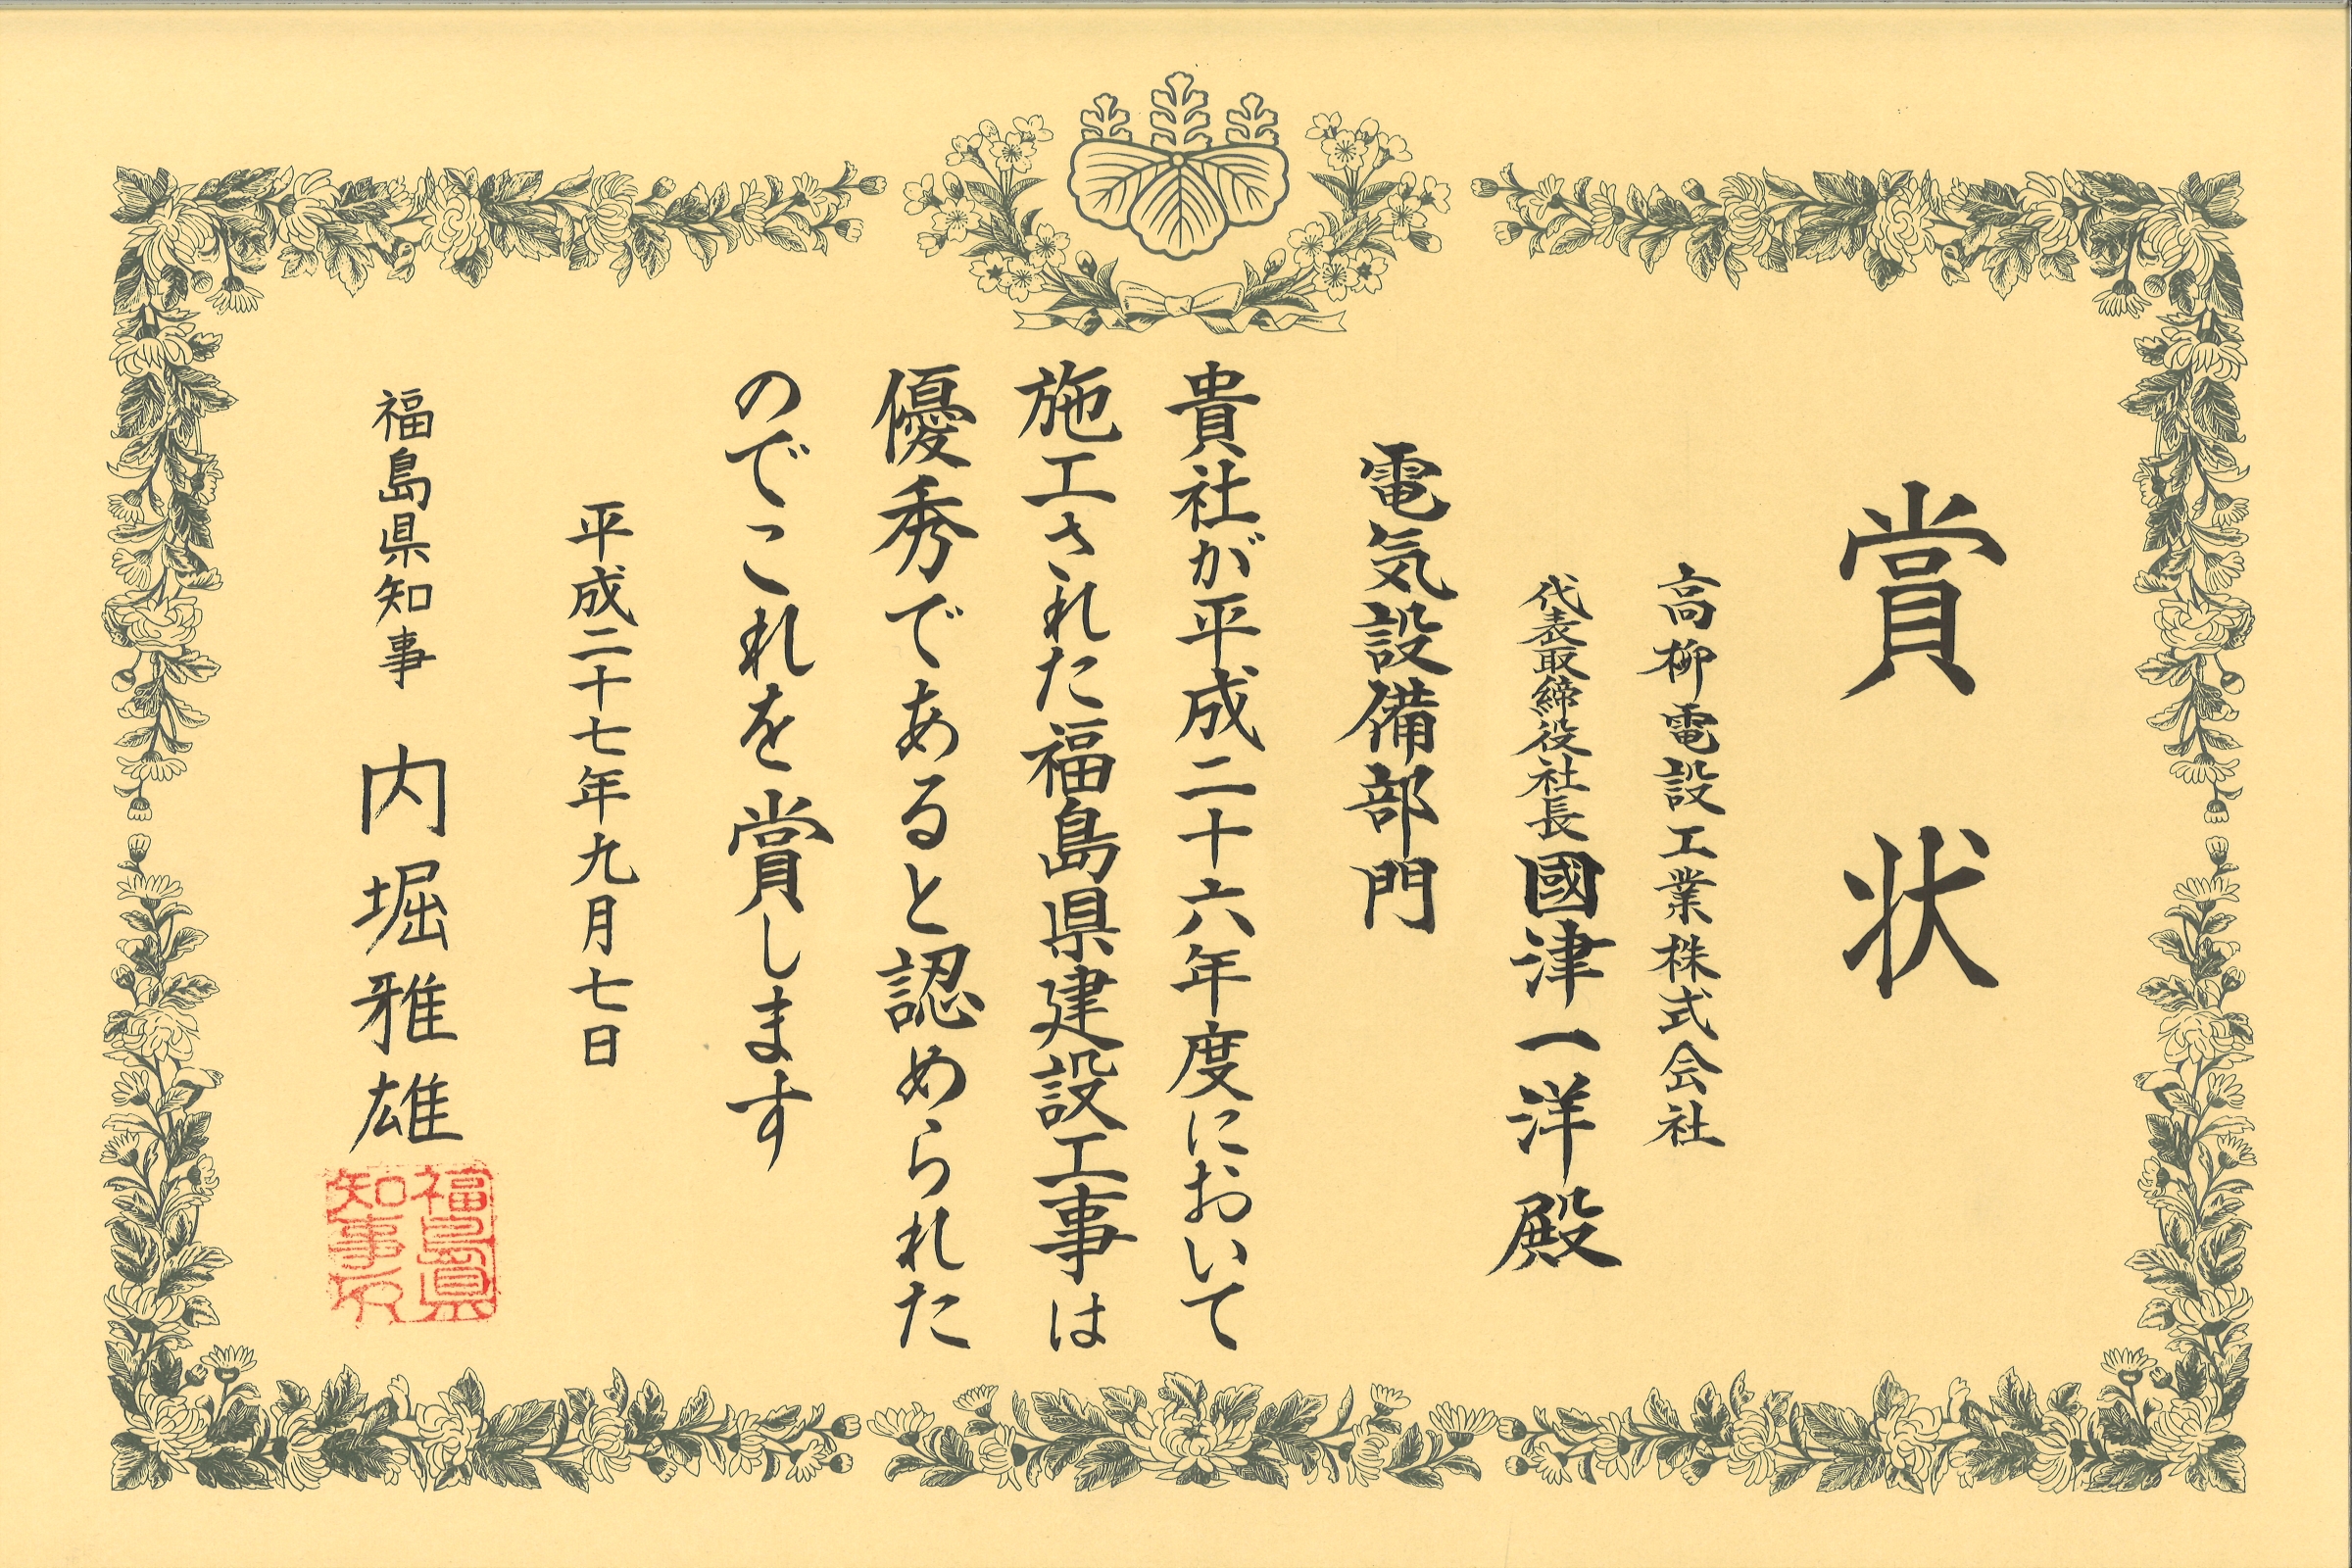 賞状
高柳電設工業株式会社
代表取締役社長國津一洋殿
電気設備部門
貴社が平成二十六年度において
施工された福島県建設工事は
優秀であると認められた
のでこれを賞します
平成二十七年九月七日
福島県知事 内堀雅雄
福島県
知事印